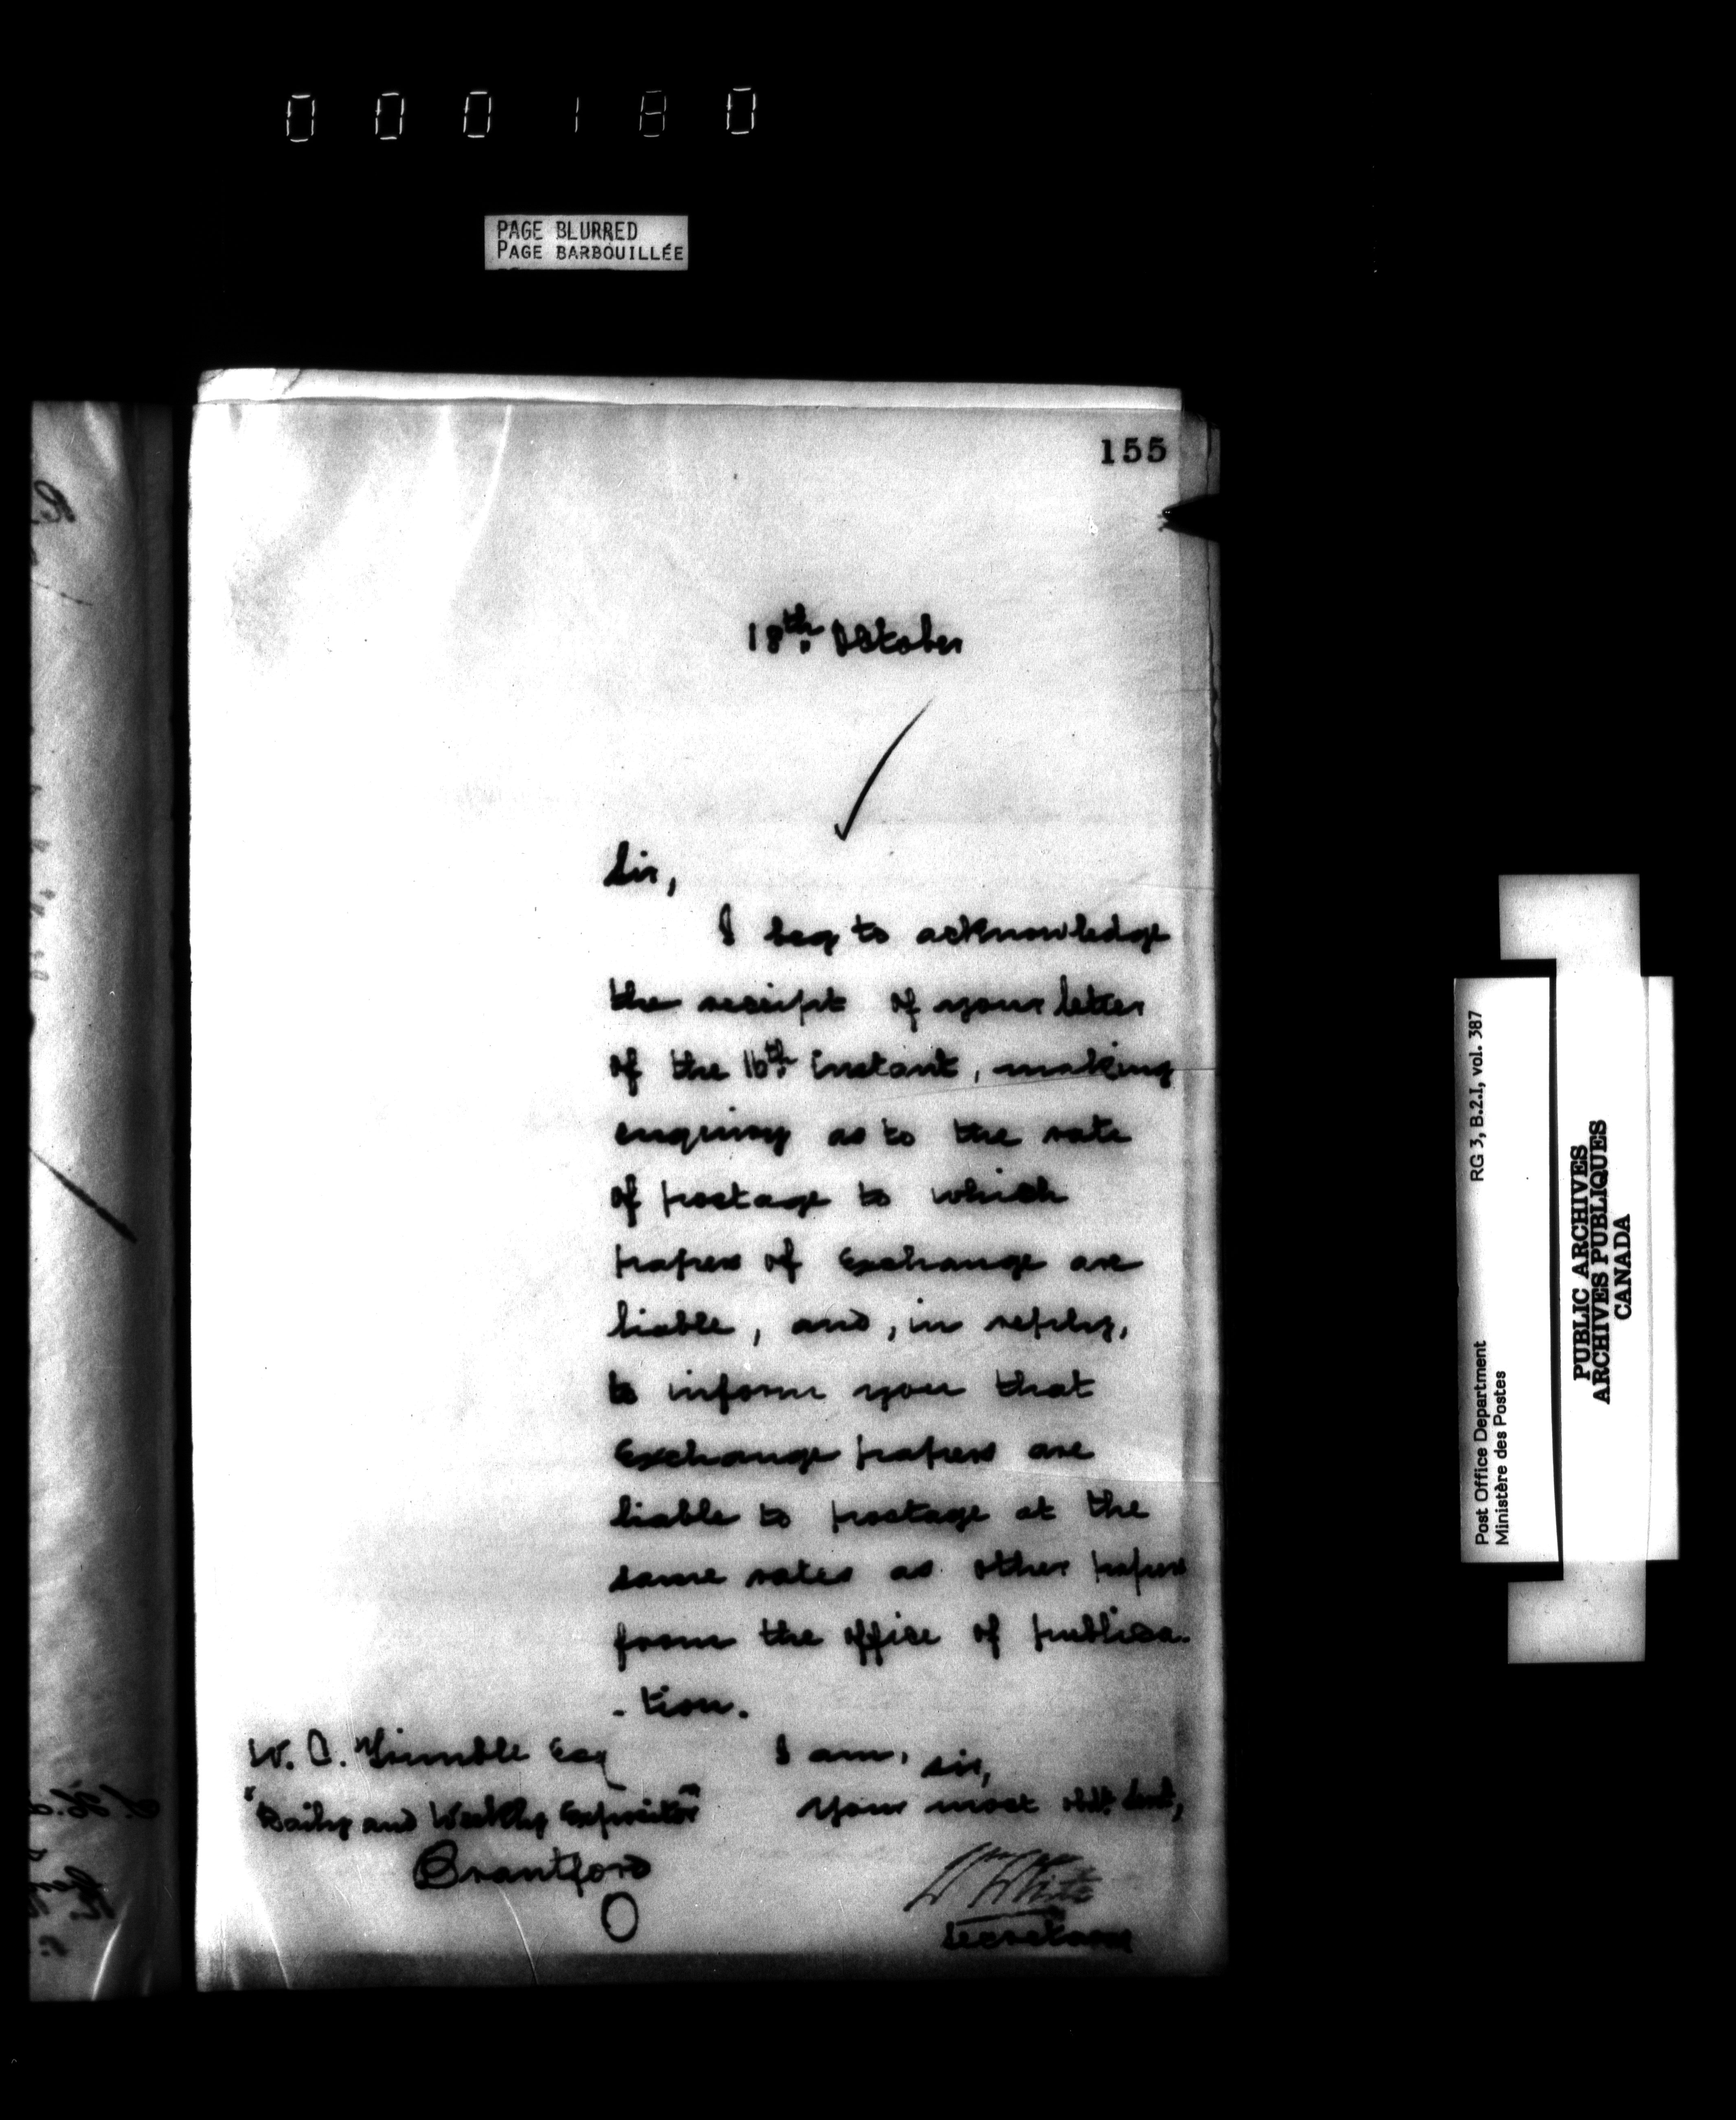 000180
PAGE BLURRED
PAGE BARBOUILLÉE
155
18th. October
Sir,
I beg to acknowledge
the receipt of your letter
of the 16th. instant, making
enquiry as to the rate
of postage to which
papers of Exchange are
liable, and, in reply,
to inform you that
Exchange papers are
liable to postage at the
same rates as other papers
from the office of publica-
-tion.
I am, Sir,
Your most obdt. Servt,
W White
Secretary
W. C. Trimble Esq
"Daily and Weekly Expositor"
Brantford
Post Office Department RG 3, B.2.I, vol. 387
Ministère des Postes
PUBLIC ARCHIVES
ARCHIVES PUBLIQUES
CANADA